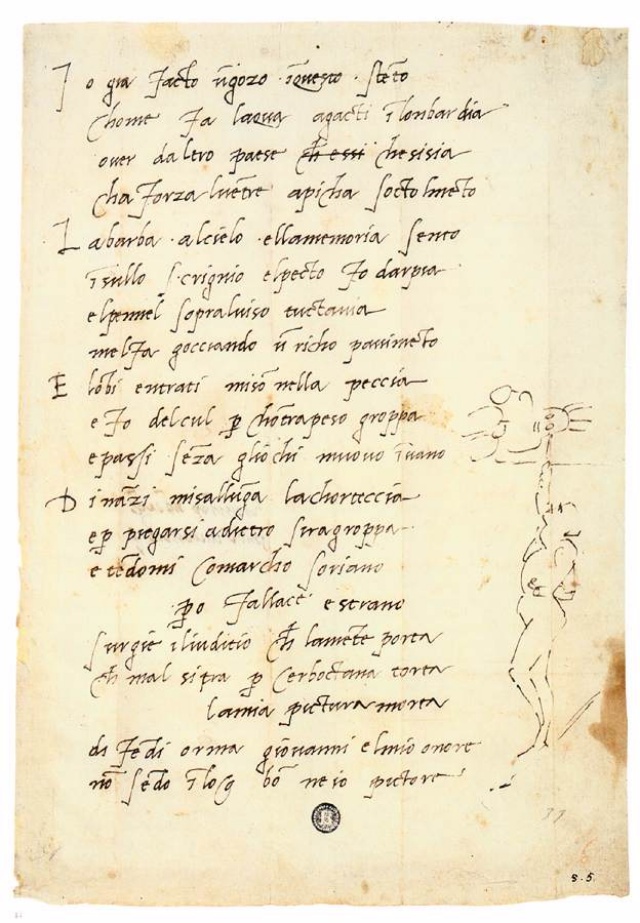 I o gia facto ūgozo īquesto stēto
chome fa laqua agacti ī lonbardia
over daltro paese ch̄ essi chesisia
cha forza lvētre apicha socto lmēto
L abarba alcielo ellamemoria sento
īsullo scrignio elpecto fo darpia
elpennel sopralviso tuctavia
melfa gocciando ū richo pavimēto
E lōbi entrati misō nella peccia
e fo delcul p̱ chōtrapeso groppa
epassi sēza gliochi muovo īvano
D ināzi misallūga lachorteccia
ep̱ piegarsi adietro siragroppa
e tēdomi Comarcho soriano
p̱o fallace e strano
surgie iliuditio ch̄ lamēte porta
ch̄ mal sipra p̱ cerboctana torta
lamia pictura morta
di fēdi orma giovanni elmio onore
nō sēdo ī log bō ne io pictore
8.5.